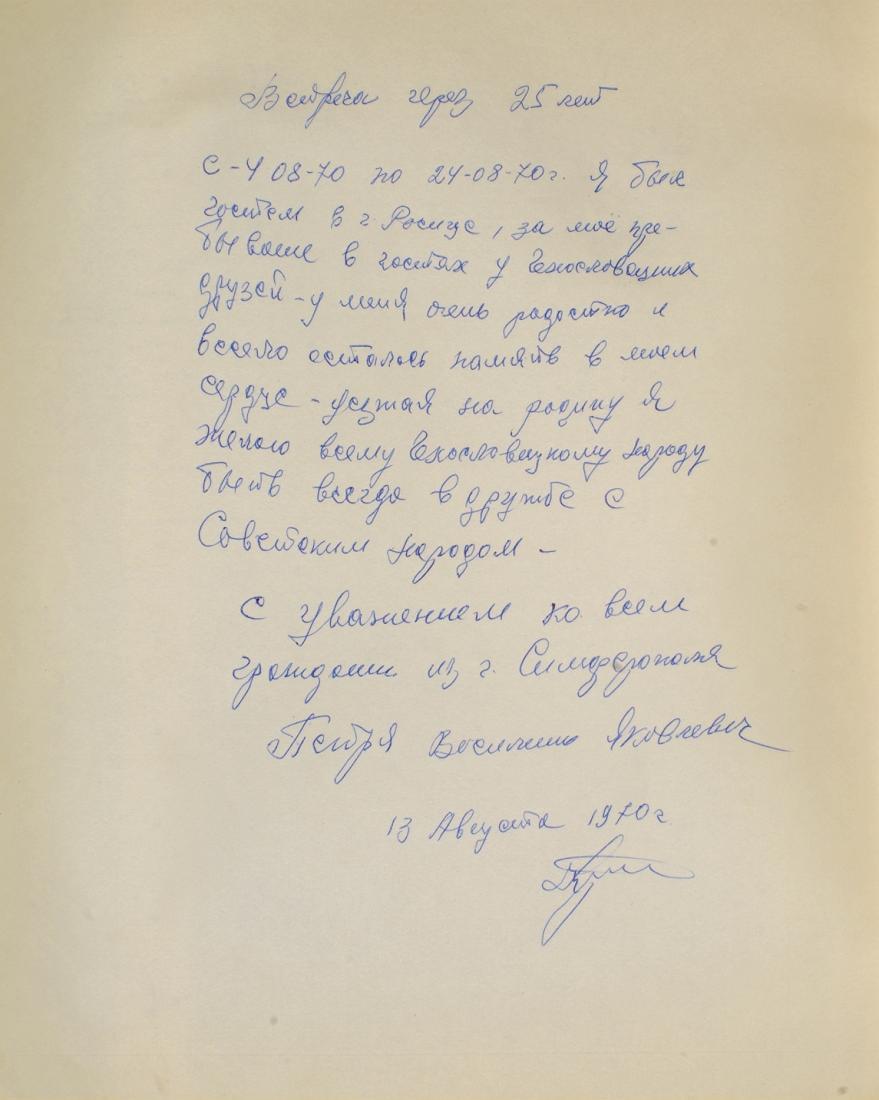 Встреча через 25 лет
С-4 08-70 по 24-08-70г. Я был
гостем в г. Росице, за моё пре-
бывание в гостях у Чехословацких
друзей - у меня очень радостно и
весело осталось память в моем
сердце - уезжая на родину я
желаю всему Чехословацкому народу
быть всегда в дружбе с
Советским народом -
С уважением ко всем
граждани из г. Симферополя
Петря Василий Яковлевич
13 Августа 1970г.